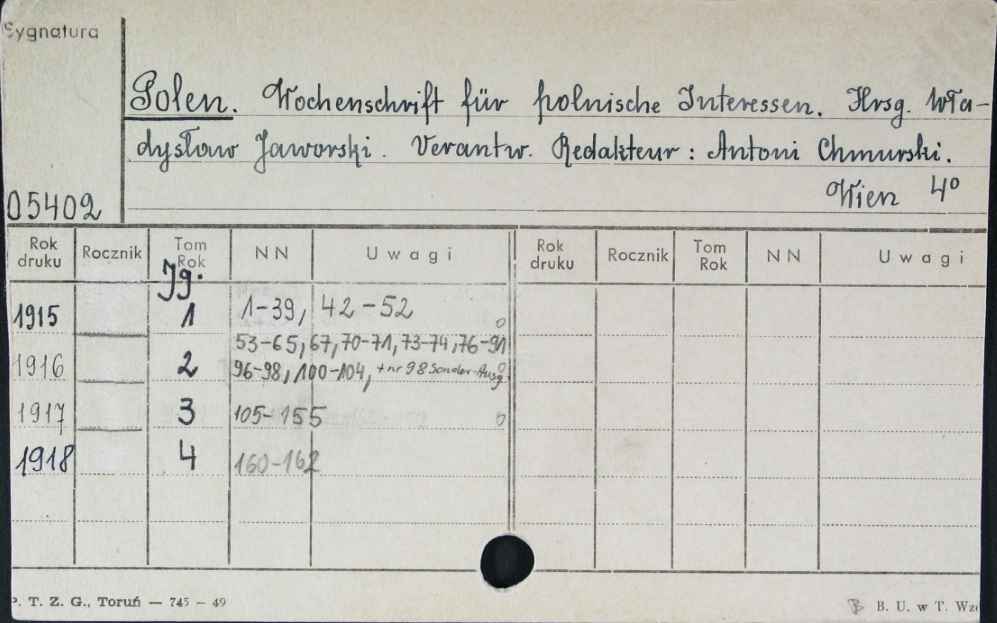 Sygnatura
Polen. Wochenschrift für polnische Interessen. Hrsg. Wła-
dysław Jaworski. Verantw. Redakteur: Antoni Chmurski.
Wien 4°
05402
Rok druku Rocznik Tom Rok NN Uwagi Rok druku Rocznik Tom Rok NN Uwagi
Jg.
1915 1 1-39, 42-52 0
53-65, 67, 70-71, 73-74, 76-91
1916 2 96-98, 100-104, + nr 98 Sonder-Ausg. 0
1917 3 105-155 0
1918 4 160-162
P. T. Z. G., Toruń — 745 - 49
B. U. w T. Wz